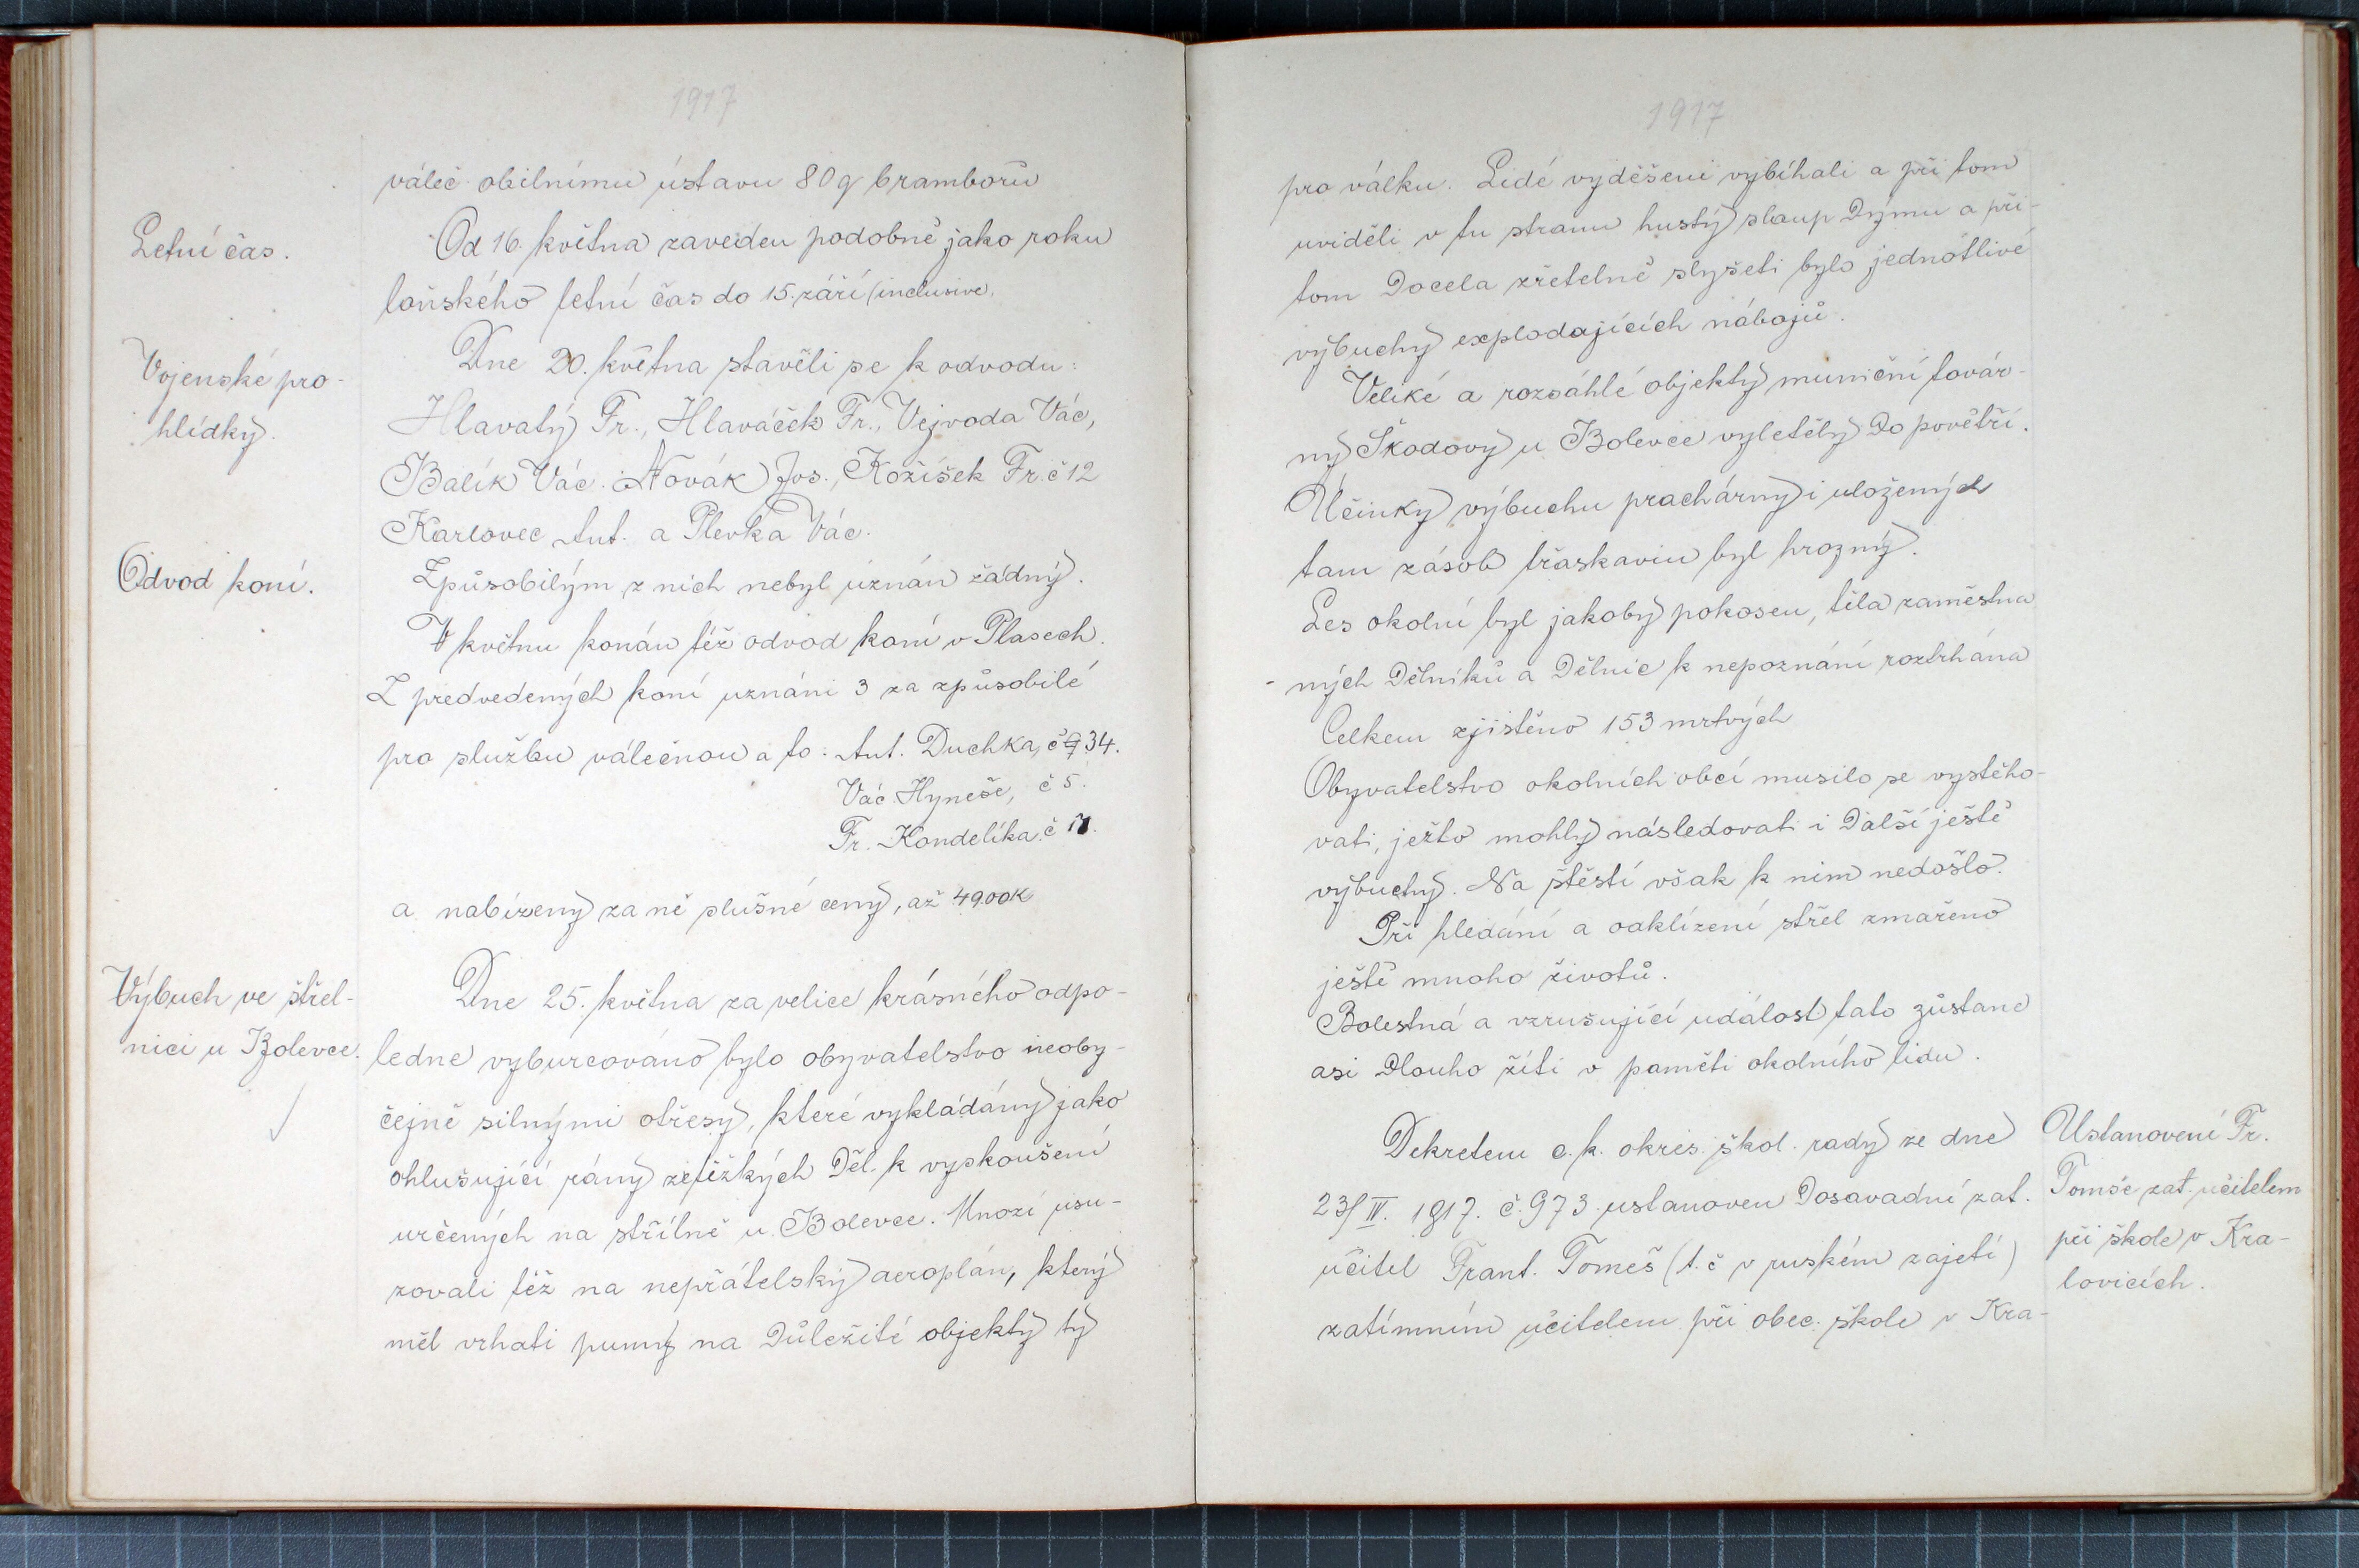 1917
váleč. obilnímu ústavu 80 q bramborů
Letní čas.
Od 16. května zaveden podobně jako roku
loňského letní čas do 15. září (inclusive.
Vojenské pro-
hlídky.
Dne 20. května stavěli se k odvodu:
Hlavatý Fr., Hlaváček Fr., Vejvoda Vác,
Balík Vác. Novák Jos., Kožíšek Fr. č 12
Karlovec Ant. a Plevka Vác.
Způsobilým z nich nebyl uznán žádný.
Odvod koní.
V květnu konán též odvod koní v Plasech.
Z předvedených koní uznáni 3 za způsobilé
pro službu válečnou a to: Ant. Duchka, č 34.
Vác. Hyneše, č 5.
Fr. Kondelíka, č
a nabízeny za ně slušné ceny, až 4900K
Výbuch ve střel-
nici u Bolevce.
Dne 25. května za velice krásného odpo-
ledne vyburcováno bylo obyvatelstvo neoby-
čejně silnými otřesy, které vykládány jako
ohlušující rány z těžkých děl k vyskoušení
určených na střílně u Bolevce. Mnozí usu-
zovali též na nepřátelský aeroplán, který
měl vrhati pumy na důležité objekty ty
1917
pro válku. Lidé vyděšeni vybíhali a při tom
uviděli v tu stranu hustý sloup dýmu a při-
tom docela zřetelně slyšeti bylo jednotlivé
výbuchy explodajících nábojů.
Veliké a rozsáhlé objekty muniční továr-
ny Škodovy u Bolevce vyletěly do povětří.
Účinky výbuchu prachárny i uložených
tam zásob třaskavin byl hrozný.
Les okolní byl jakoby pokosen, těla zaměstna
-ných dělníků a dělnic k nepoznání roztrhána
Celkem zjištěno 153 mrtvých
Obyvatelstvo okolních obcí musilo se vystěho-
vati, ježto mohly následovati i další ještě
výbuchy. Na štěstí však k nim nedošlo.
Při hledání a odklízení střel zmařeno
ještě mnoho životů.
Bolestná a vzrušující událost tato zůstane
asi dlouho žíti v paměti okolního lidu.
Dekretem c. k. okres. škol. rady ze dne
23/IV. 1917. č. 973 ustanoven dosavadní zat.
učitel Frant. Tomeš (t. č v ruském zajetí)
zatímním učitelem při obec. škole v Kra-
Ustanovení Fr.
Tomše zat. učitelem
při škole v Kra-
lovicích.